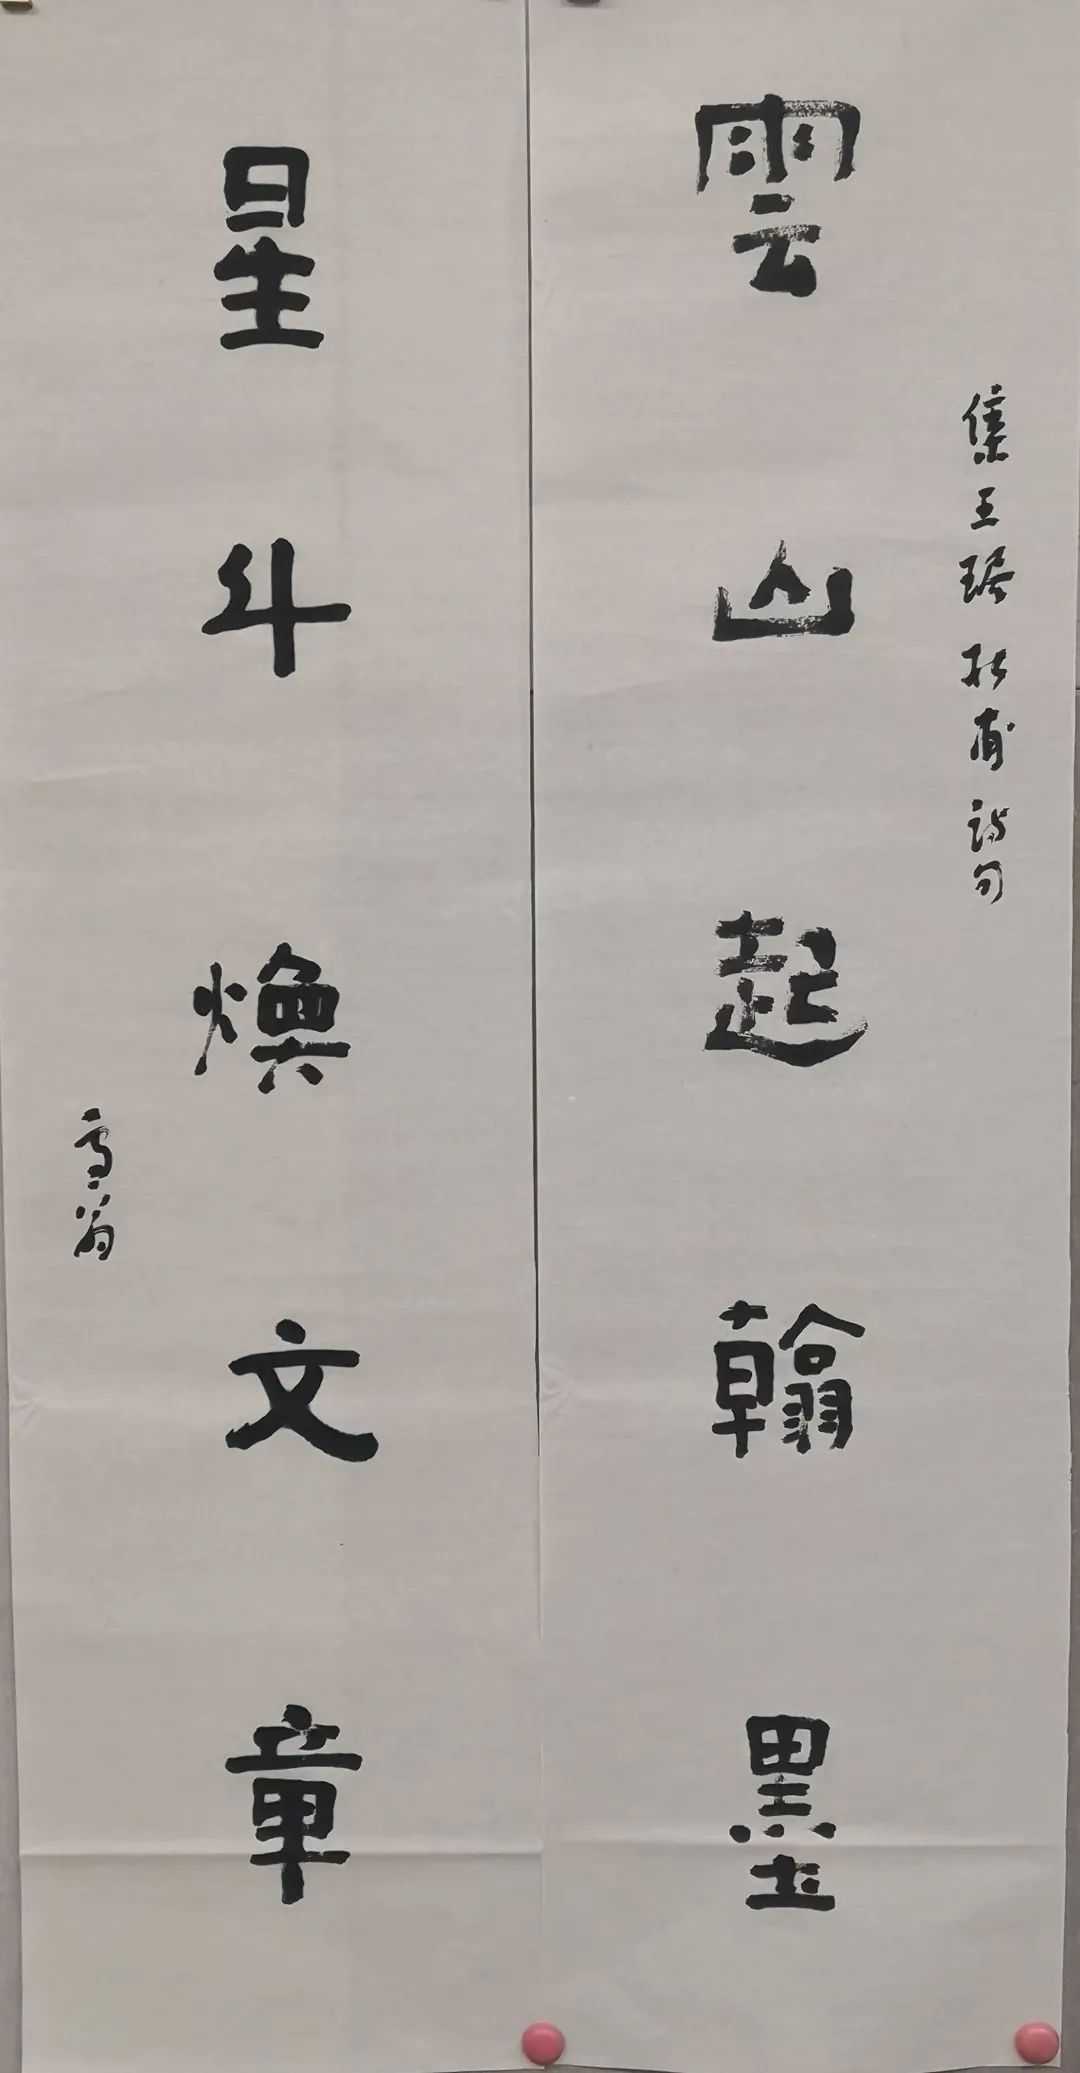 集王琚杜甫詩句
雲山起翰墨
星斗煥文章
雪翁